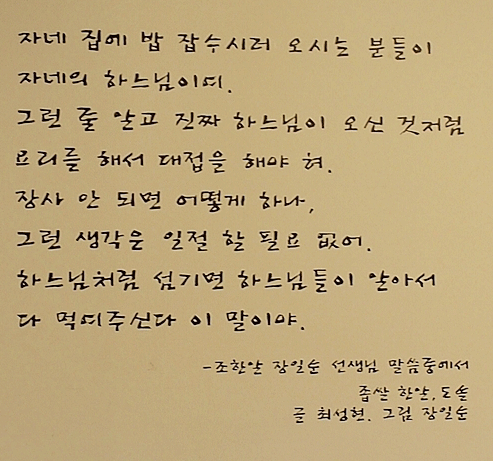 자네 집에 밥 잡수시러 오시는 분들이
자네의 하느님이여.
그런 줄 알고 진짜 하느님이 오신 것처럼
요리를 해서 대접을 해야 혀.
장사 안 되면 어떻게 하나,
그런 생각은 일절 할 필요 없어.
하느님처럼 섬기면 하느님들이 알아서
다 먹여주신다 이 말이야.
-조한알 장일순 선생님 말씀중에서
좁쌀 한알, 도솔
글 최성현. 그림 장일순